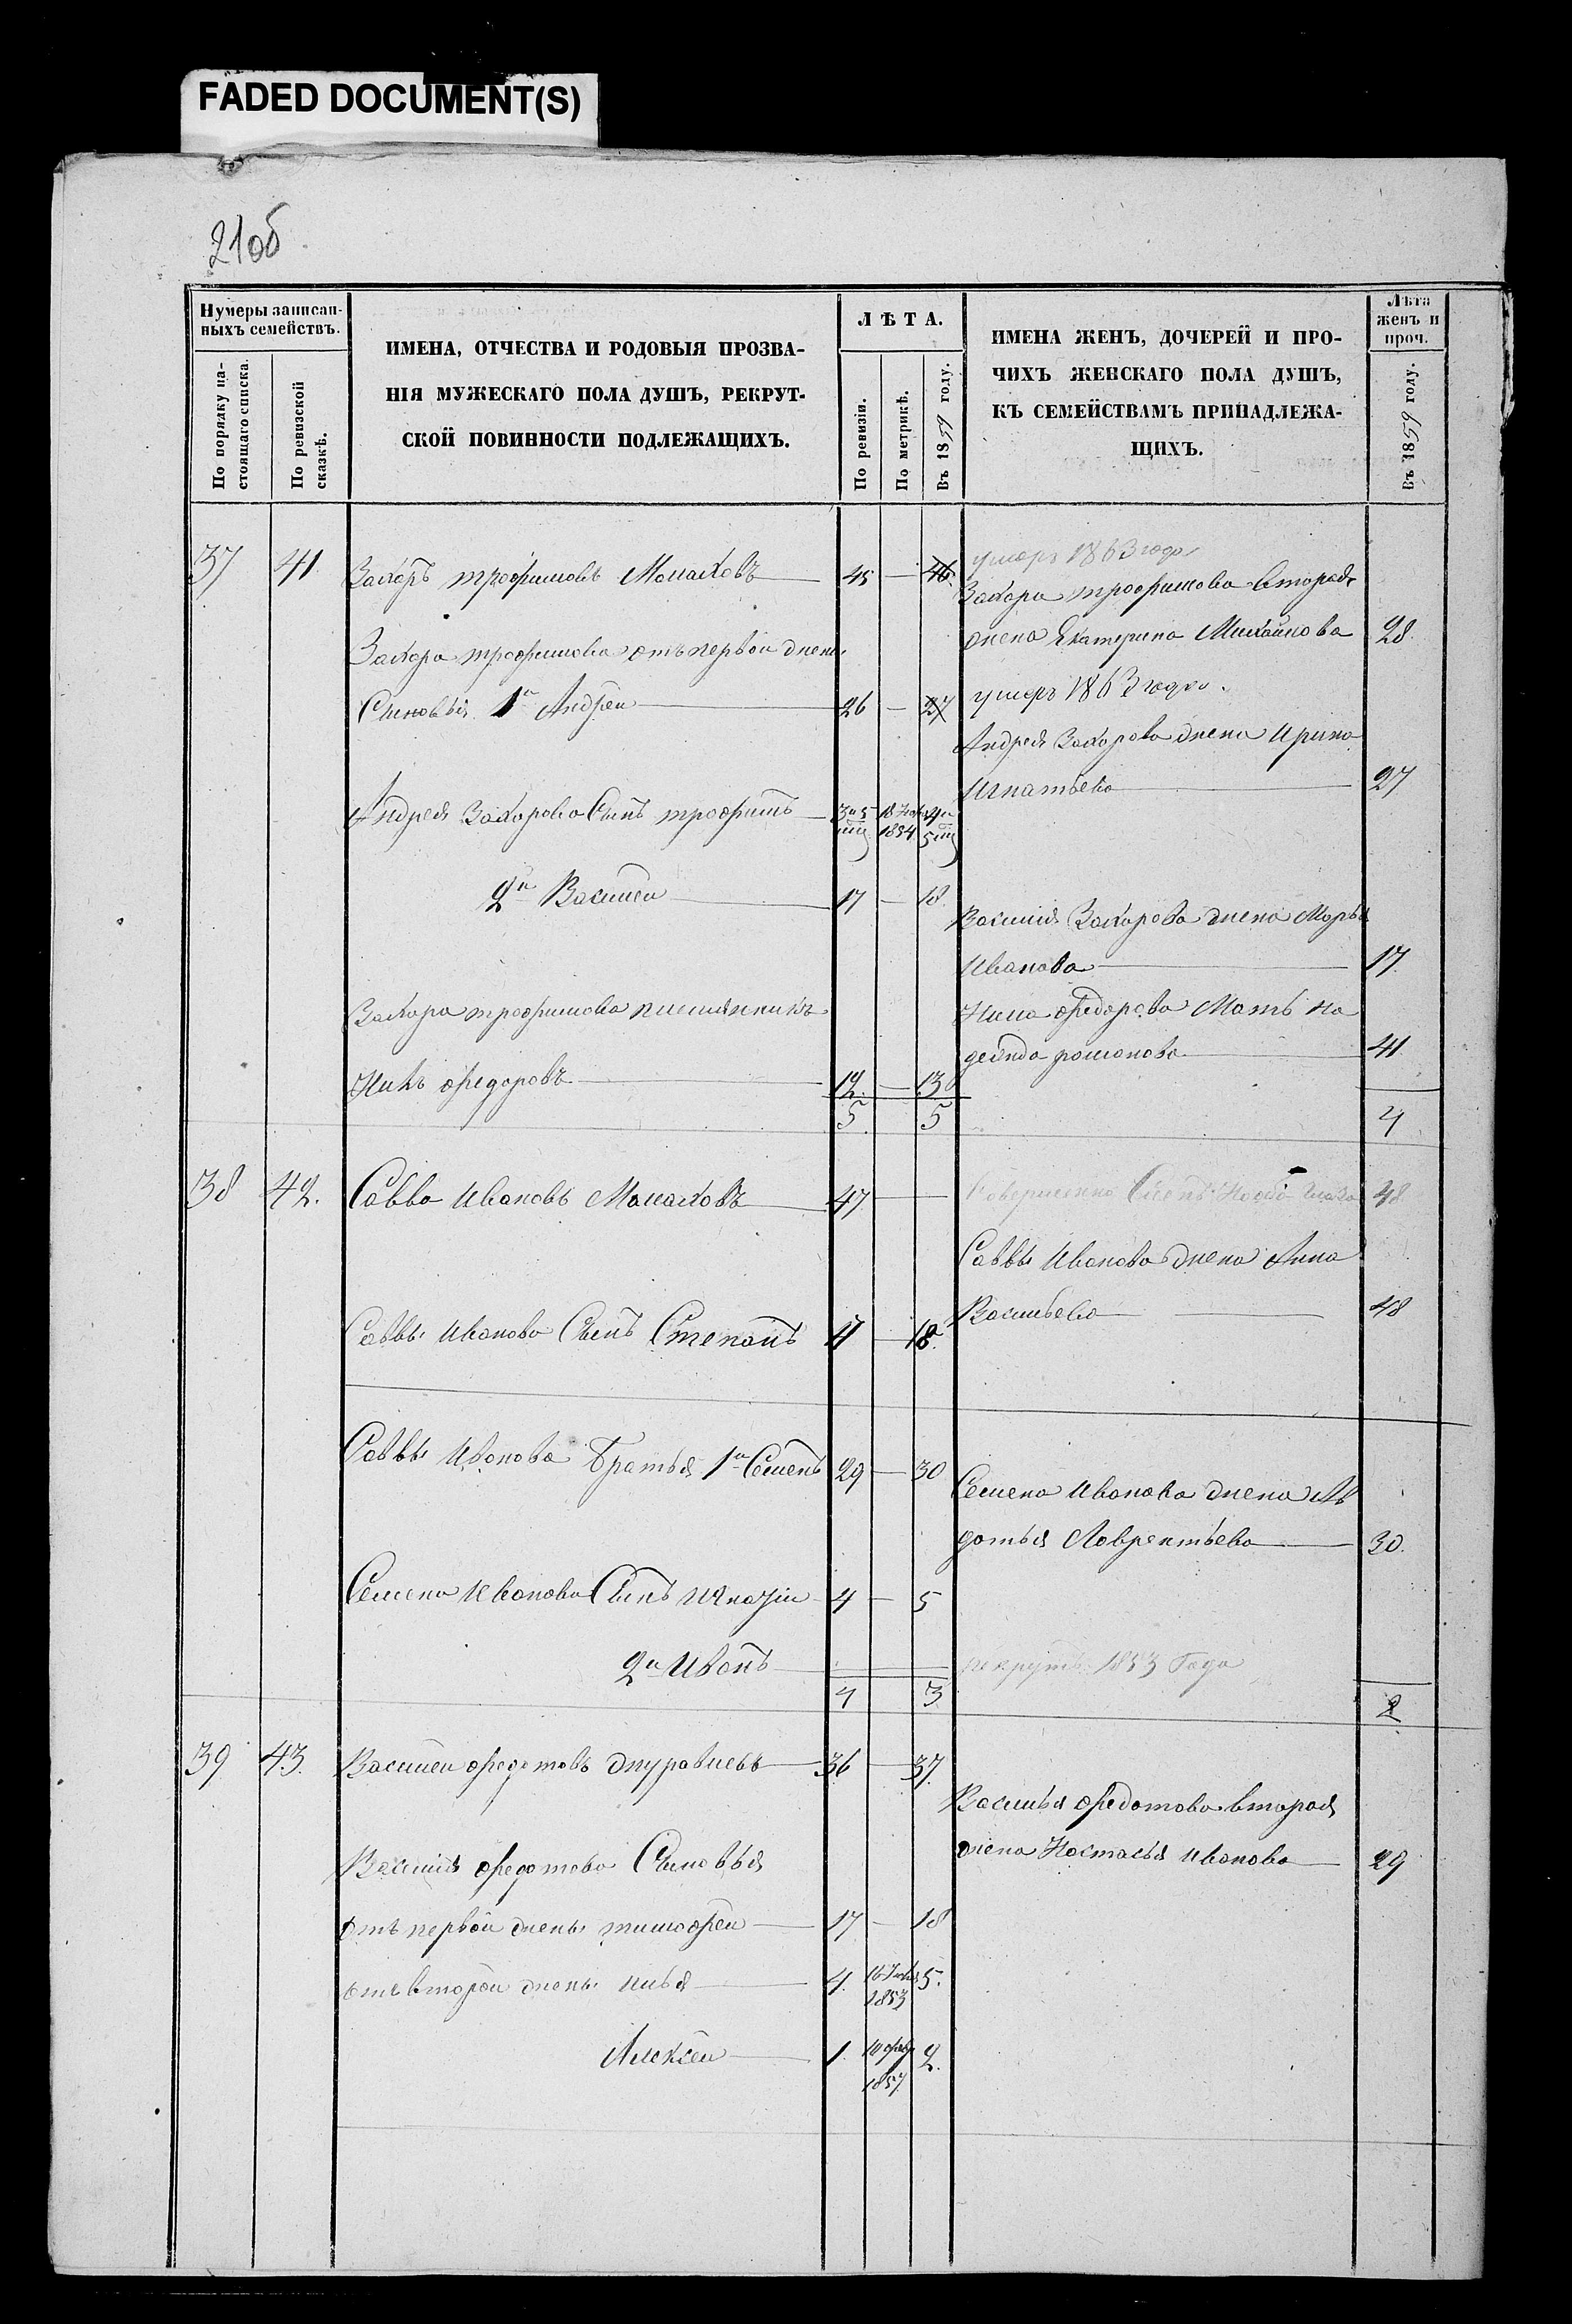 FADED DOCUMENT(S)
21об
Нумеры записан-
ныхъ семействъ.
По порядку на-
стоящаго списка.
По ревизской
сказкѣ.
ИМЕНА, ОТЧЕСТВА И РОДОВЫЯ ПРОЗВА-
НІЯ МУЖЕСКАГО ПОЛА ДУШЪ, РЕКРУТ-
СКОЙ ПОВИННОСТИ ПОДЛЕЖАЩИХЪ.
ЛѢТА.
По ревизіи.
По метрикѣ.
Въ 1859 году.
ИМЕНА ЖЕНЪ, ДОЧЕРЕЙ И ПРО-
ЧИХЪ ЖЕНСКАГО ПОЛА ДУШЪ,
КЪ СЕМЕЙСТВАМЪ ПРИНАДЛЕЖА-
ЩИХЪ.
Лѣта
женъ и
проч.
Въ 1859 году.
умеръ 1863 года
37 41 Захаръ трофимовъ 45 — 46
Захара трофимова вторая
жена Екатерина Михайлова 28
Захара трофимова отъ первой жены
умеръ 1863 года.
Сыновья 1й Андрей 26 — 27
Андрея Захарова жена Ирина
Игнатьева 27
Андрея Захарова Сынъ трофимъ 1854
2й Василей 17 — 18
Василія Захарова жена Марья
Иванова 17
Захара трофимова племянникъ
федорова Мать на
дежда романова 41
федоровъ 12 — 13
5 5 4
38 42. Савва Ивановъ 47 — 48
Саввы Иванова жена Анна
Васильева 48
Саввы Иванова Сынъ Степанъ 17 — 18.
Саввы Иванова братья 1й Семенъ 29 — 30
Семена Иванова жена Ав
дотья Лаврентьева 30.
Семена Иванова Сынъ Игнатій 4 — 5
2й Иванъ рекрутъ 1853 Года
4 3 2
39 43. Василей федотовъ журавлевъ 36 — 37.
Василья федотова вторая
жена Настасья Иванова 29
Василія федотова Сыновья
отъ первой жены тимофей 17 — 18
отъ второй жены илья 4. 1853 5.
Алексей 1. 10 фев 1857 2.